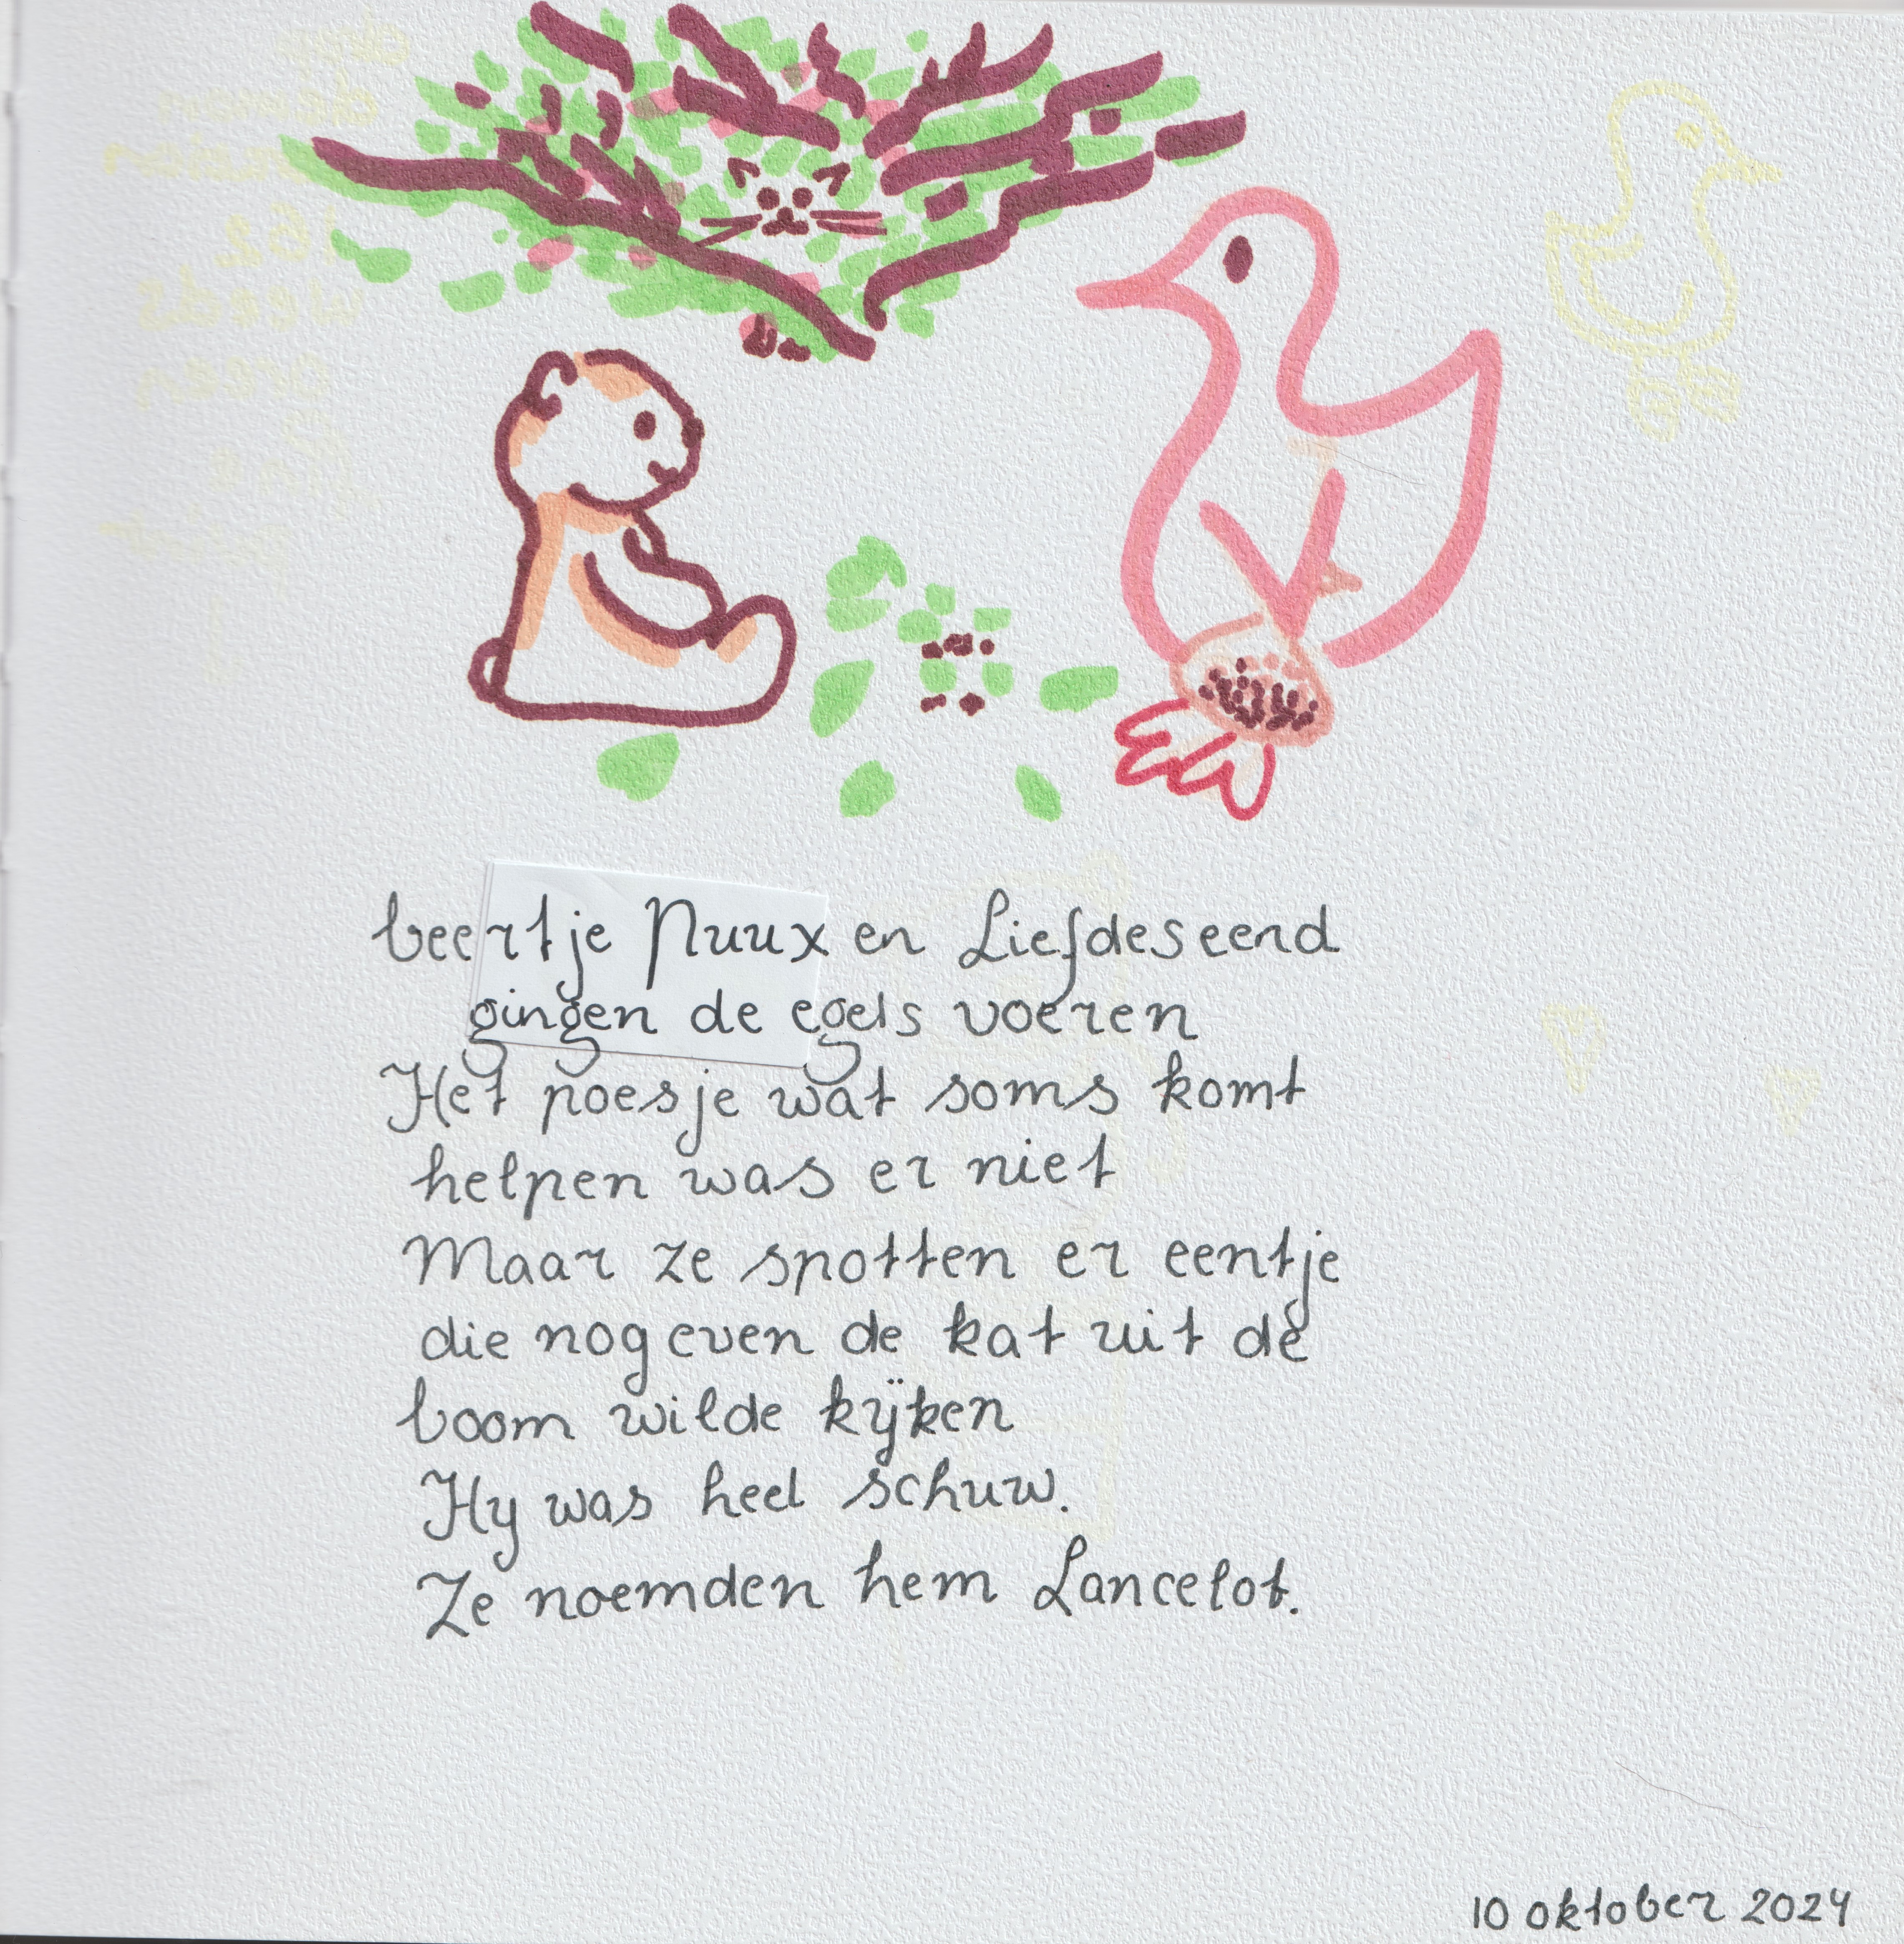 beertje Nuux en Liefdeseend
gingen de egels voeren
Het poesje wat soms komt
helpen was er niet
Maar ze spotten er eentje
die nog even de kat uit de
boom wilde kijken
Hy was heel schuw.
Ze noemden hem Lancelot.
10 oktober 2024